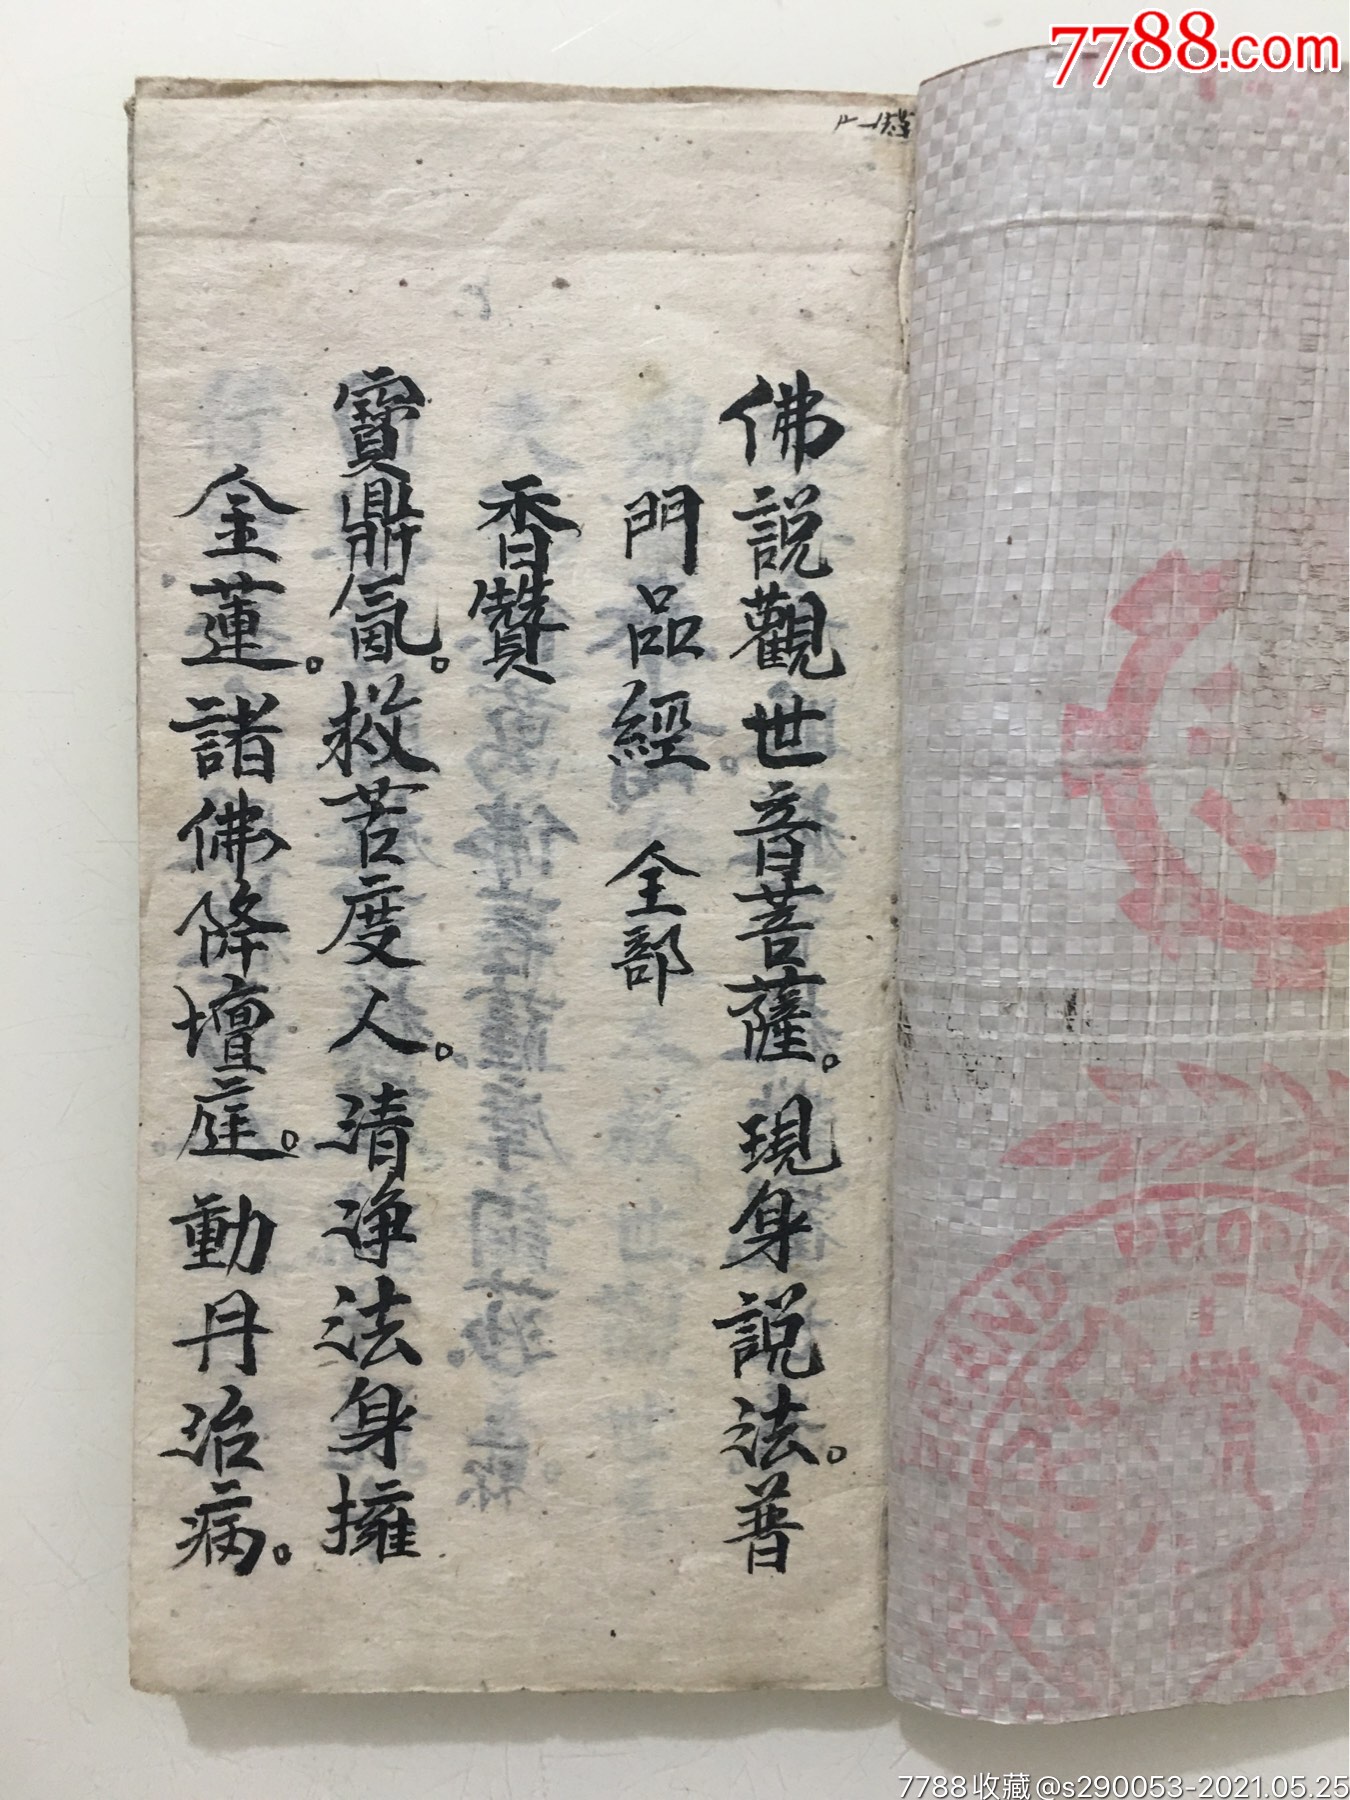 7788.com
佛說觀世音菩薩。現身說法。普
門品經 全部
香贊
寳鼎氤。救苦度人。清净法身擁
金蓮。諸佛降壇庭。動丹治病。
7788收藏@s290053-2021.05.25